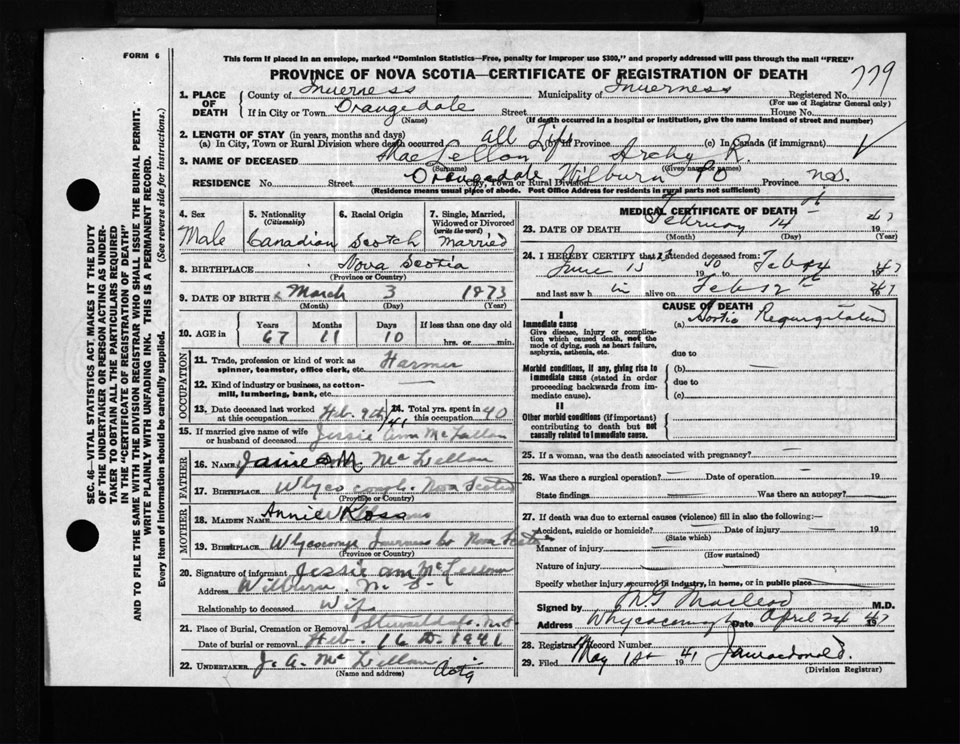 FORM 6
This form if placed in an envelope, marked "Dominion Statistics—Free, penalty for improper use $300," and properly addressed will pass through the mail "FREE"
PROVINCE OF NOVA SCOTIA—CERTIFICATE OF REGISTRATION OF DEATH
779
1. PLACE OF DEATH County of Inverness Municipality of Inverness Registered No.
(For use of Registrar General only)
If in City or Town Orangedale Street House No.
(Name) (If death occurred in a hospital or institution, give the name instead of street and number)
2. LENGTH OF STAY (in years, months and days)
(a) In City, Town or Rural Division where death occurred all Life (b) In Province (c) In Canada (if immigrant)
3. NAME OF DECEASED MacLellan Archy R.
(Surname) (Given name or names)
RESIDENCE No. Street Orangedale Wilburn PO Province N.S.
City, Town or Rural Division
(Residence means usual place of abode. Post Office Address for residents in rural parts not sufficient)
4. Sex
Male
5. Nationality (Citizenship)
Canadian
6. Racial Origin
Scotch
7. Single, Married, Widowed or Divorced (write the word)
Married
8. BIRTHPLACE Nova Scotia
(Province or Country)
9. DATE OF BIRTH March 3 1873
(Month) (Day) (Year)
10. AGE in
Years Months Days If less than one day old
67 11 10 hrs. or min.
OCCUPATION
11. Trade, profession or kind of work as spinner, teamster, office clerk, etc. Farmer
12. Kind of industry or business, as cotton-mill, lumbering, bank, etc.
13. Date deceased last worked at this occupation Feb. 9th 41
14. Total yrs. spent in this occupation 40
15. If married give name of wife or husband of deceased Jessie Ann McLellan
FATHER
16. NAME James M McLellan
17. BIRTHPLACE Whycocomagh Nova Scotia
(Province or Country)
MOTHER
18. MAIDEN NAME Annie Ross
19. BIRTHPLACE Whycocomagh Inverness Co Nova Scotia
(Province or Country)
20. Signature of informant Jessie Ann McLellan
Address Wilburn N. S.
Relationship to deceased Wife
21. Place of Burial, Cremation or Removal Stewartdale N.S.
Date of burial or removal Feb. 16th 1941
22. UNDERTAKER J. A. McLellan Actg
(Name and address)
MEDICAL CERTIFICATE OF DEATH
23. DATE OF DEATH February 14 1941
(Month) (Day) (Year)
24. I HEREBY CERTIFY that I attended deceased from:
June 15 1940 to Feb 14 1941
and last saw him alive on Feb 12th 1941
CAUSE OF DEATH
I
Immediate cause
Give disease, injury or complication which caused death, not the mode of dying, such as heart failure, asphyxia, asthenia, etc.
(a) Aortic Regurgitation
due to
Morbid conditions, if any, giving rise to immediate cause (stated in order proceeding backwards from immediate cause).
(b)
due to
(c)
II
Other morbid conditions (if important) contributing to death but not causally related to immediate cause.
25. If a woman, was the death associated with pregnancy?
26. Was there a surgical operation? Date of operation 19
State findings Was there an autopsy?
27. If death was due to external causes (violence) fill in also the following:—
Accident, suicide or homicide? Date of injury 19
(State which)
Manner of injury
(How sustained)
Nature of injury
Specify whether injury occurred in industry, in home, or in public place
Signed by M G Macleod M.D.
Address Whycocomagh Date April 24 1941
28. Registrar's Record Number
29. Filed May 1st 1941
(Division Registrar)
SEC. 46—VITAL STATISTICS ACT, MAKES IT THE DUTY
OF THE UNDERTAKER OR PERSON ACTING AS UNDERTAKER
TO OBTAIN ALL THE PARTICULARS REQUIRED
IN THE "CERTIFICATE OF REGISTRATION OF DEATH"
AND TO FILE THE SAME WITH THE DIVISION REGISTRAR WHO SHALL ISSUE THE BURIAL PERMIT.
WRITE PLAINLY WITH UNFADING INK. THIS IS A PERMANENT RECORD.
Every item of information should be carefully supplied. (See reverse side for instructions.)